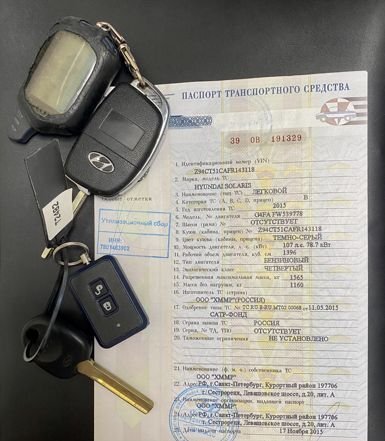 ПАСПОРТ ТРАНСПОРТНОГО СРЕДСТВА
39 ОВ 191329
1. Идентификационный номер (VIN)
Z94CT51CAFR143118
2. Марка, модель ТС
HYUNDAI SOLARIS
3. Наименование (тип ТС) ЛЕГКОВОЙ
4. Категория ТС (А, В, С, D, прицеп) В
5. Год изготовления ТС 2015
6. Модель, № двигателя G4FA FW539778
7. Шасси (рама) № ОТСУТСТВУЕТ
8. Кузов (кабина, прицеп) № Z94CT51CAFR143118
9. Цвет кузова (кабины, прицепа) ТЕМНО-СЕРЫЙ
10. Мощность двигателя, л. с. (кВт) 107 л.с. 78.7 кВт
11. Рабочий объем двигателя, куб. см 1396
12. Тип двигателя БЕНЗИНОВЫЙ
13. Экологический класс ЧЕТВЕРТЫЙ
14. Разрешенная максимальная масса, кг 1565
15. Масса без нагрузки, кг 1160
16. Изготовитель ТС (страна)
ООО "ХММР"(РОССИЯ)
17. Одобрение типа ТС № от 11.05.2015
САТР-ФОНД
18. Страна вывоза ТС РОССИЯ
19. Серия, № ТД, ТПО ОТСУТСТВУЕТ
20. Таможенные ограничения НЕ УСТАНОВЛЕНО
21. Наименование (ф. и. о.) собственника ТС
ООО "ХММР"
22. Адрес РФ, г.Санкт-Петербург, Курортный район 197706
г. Сестрорецк, Левашовское шоссе, д.20, лит. А
23. Наименование организации, выдавшей паспорт
ООО "ХММР"
24. Адрес РФ, г.Санкт-Петербург, Курортный район 197706
г. Сестрорецк, Левашовское шоссе, д.20, лит. А
25. Дата выдачи паспорта 17 Ноября 2015
отметки
Утилизационный сбор
ИНН:
HYUNDAI